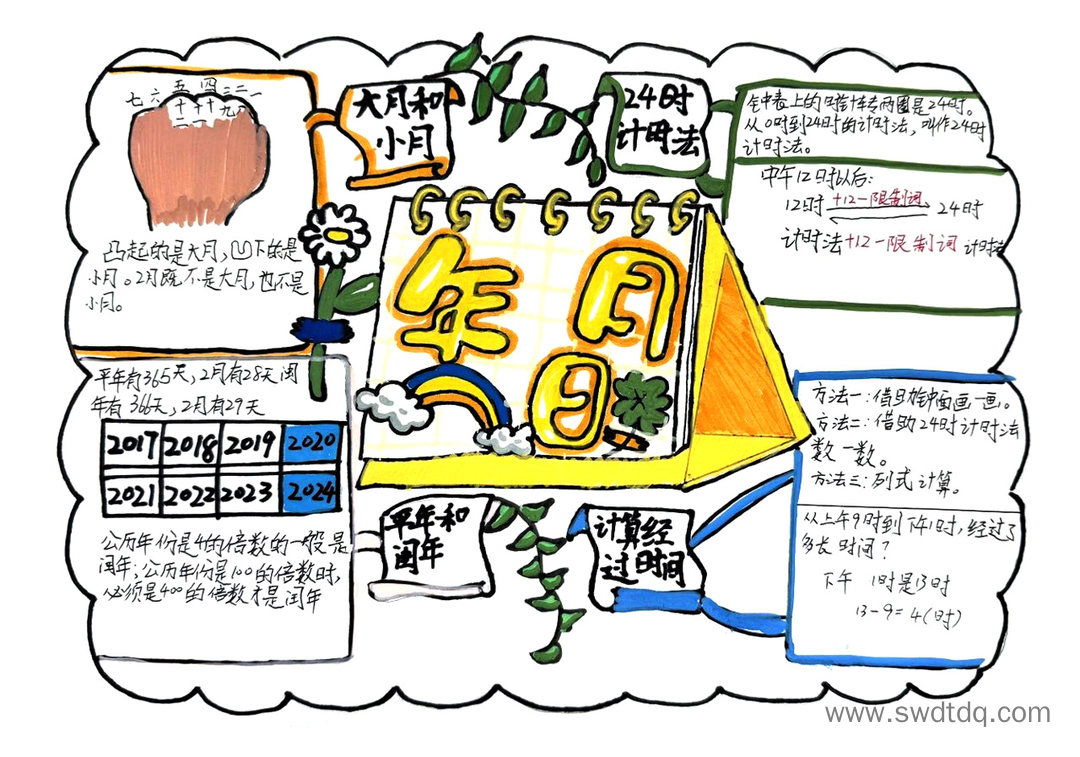 大月和
小月
七 六 五 四 三 二 一
十 十 十 九 八
二 一
凸起的是大月,凹下的是
小月。2月既不是大月,也不是
小月。
24时
计时法
钟表上的时针转两圈是24时。
从0时到24时的计时法,叫作24时
计时法。
中午12时以后:
12时 +12-限制词 24时
计时法 +12-限制词 计时法
年 月
日
平年有365天,2月有28天闰
年有366天,2月有29天
2017 2018 2019 2020
2021 2022 2023 2024
公历年份是4的倍数的一般是
闰年;公历年份是100的倍数时,
必须是400的倍数才是闰年
平年和
闰年
计算经
过时间
方法一:借助钟面画一画。
方法二:借助24时计时法
数一数。
方法三:列式计算。
从上午9时到下午1时,经过了
多长时间?
下午 1时是13时
13-9=4(时)
www.swdtdq.com